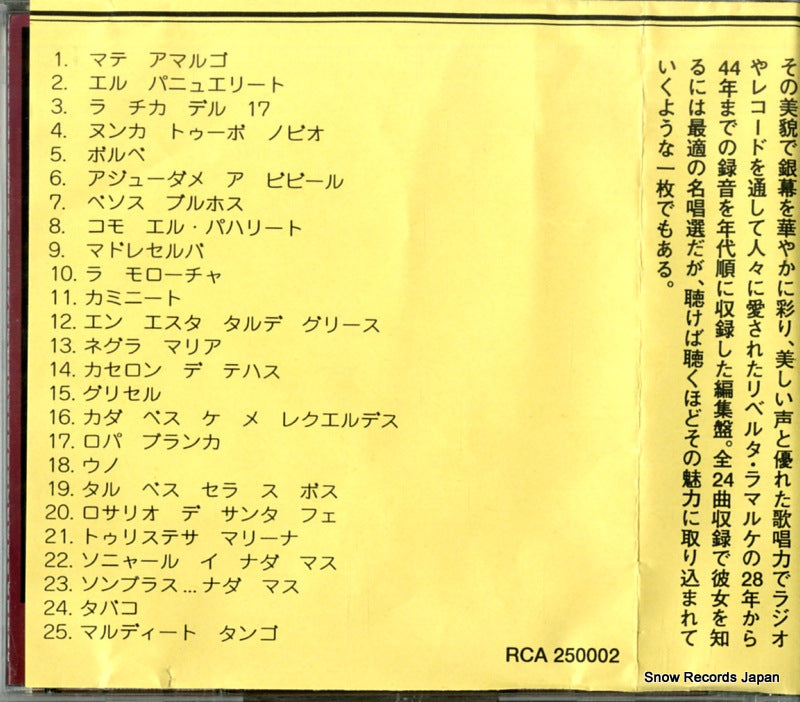 1. マテ　アマルゴ
2. エル　パニュエリート
3. ラ　チカ　デル　17
4. ヌンカ　トゥーボ　ノビオ
5. ボルベ
6. アジューダメ　ア　ビビール
7. ベソス　ブルホス
8. コモ　エル・パハリート
9. マドレセルバ
10. ラ　モローチャ
11. カミニート
12. エン　エスタ　タルデ　グリース
13. ネグラ　マリア
14. カセロン　デ　テハス
15. グリセル
16. カダ　ベス　ケ　メ　レクエルデス
17. ロパ　ブランカ
18. ウノ
19. タル　ベス　セラ　ス　ボス
20. ロサリオ　デ　サンタ　フェ
21. トゥリステサ　マリーナ
22. ソニャール　イ　ナダ　マス
23. ソンブラス…ナダ　マス
24. タバコ
25. マルディート　タンゴ
RCA 250002
その美貌で銀幕を華やかに彩り、美しい声と優れた歌唱力でラジオ
やレコードを通して人々に愛されたリベルタ・ラマルケの28年から
44年までの録音を年代順に収録した編集盤。全24曲収録で彼女を知
るには最適の名唱選だが、聴けば聴くほどその魅力に取り込まれて
いくような一枚でもある。
Snow Records Japan